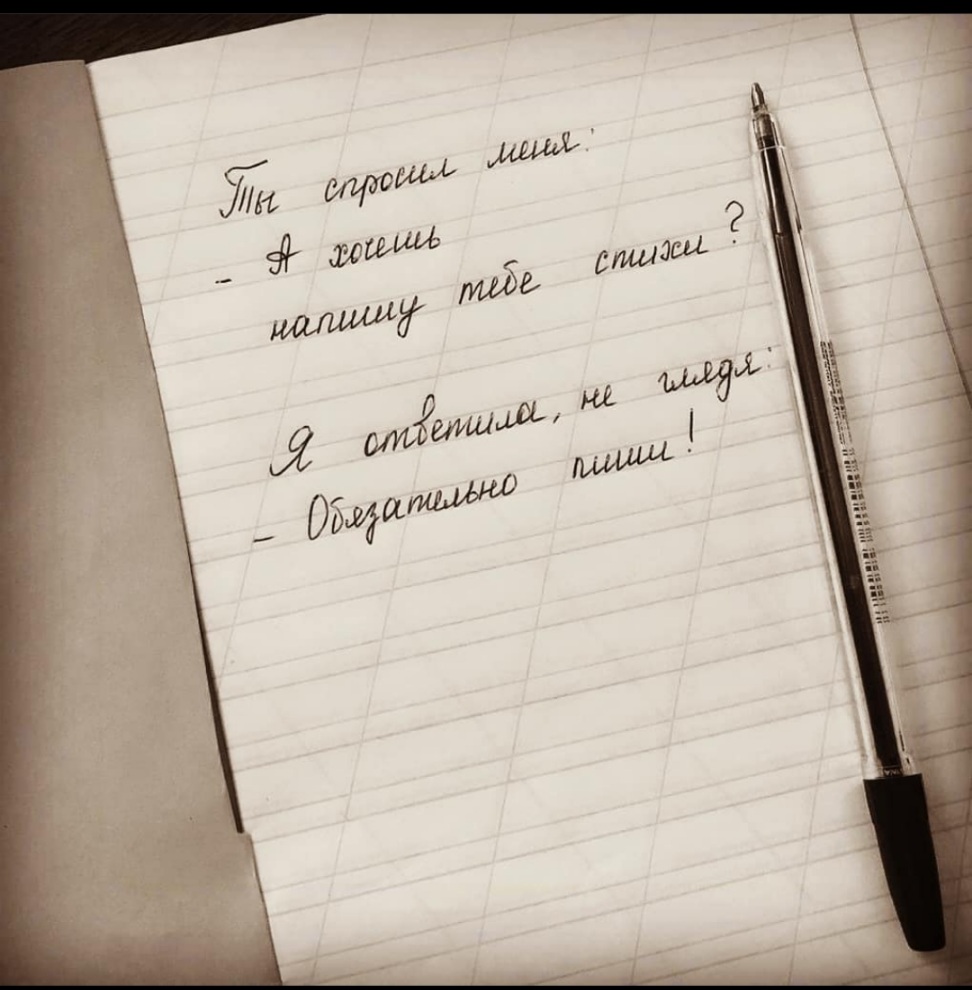 Ты спросил меня:
- А хочешь
напишу тебе стихи?
Я ответила, не глядя:
- Обязательно пиши!